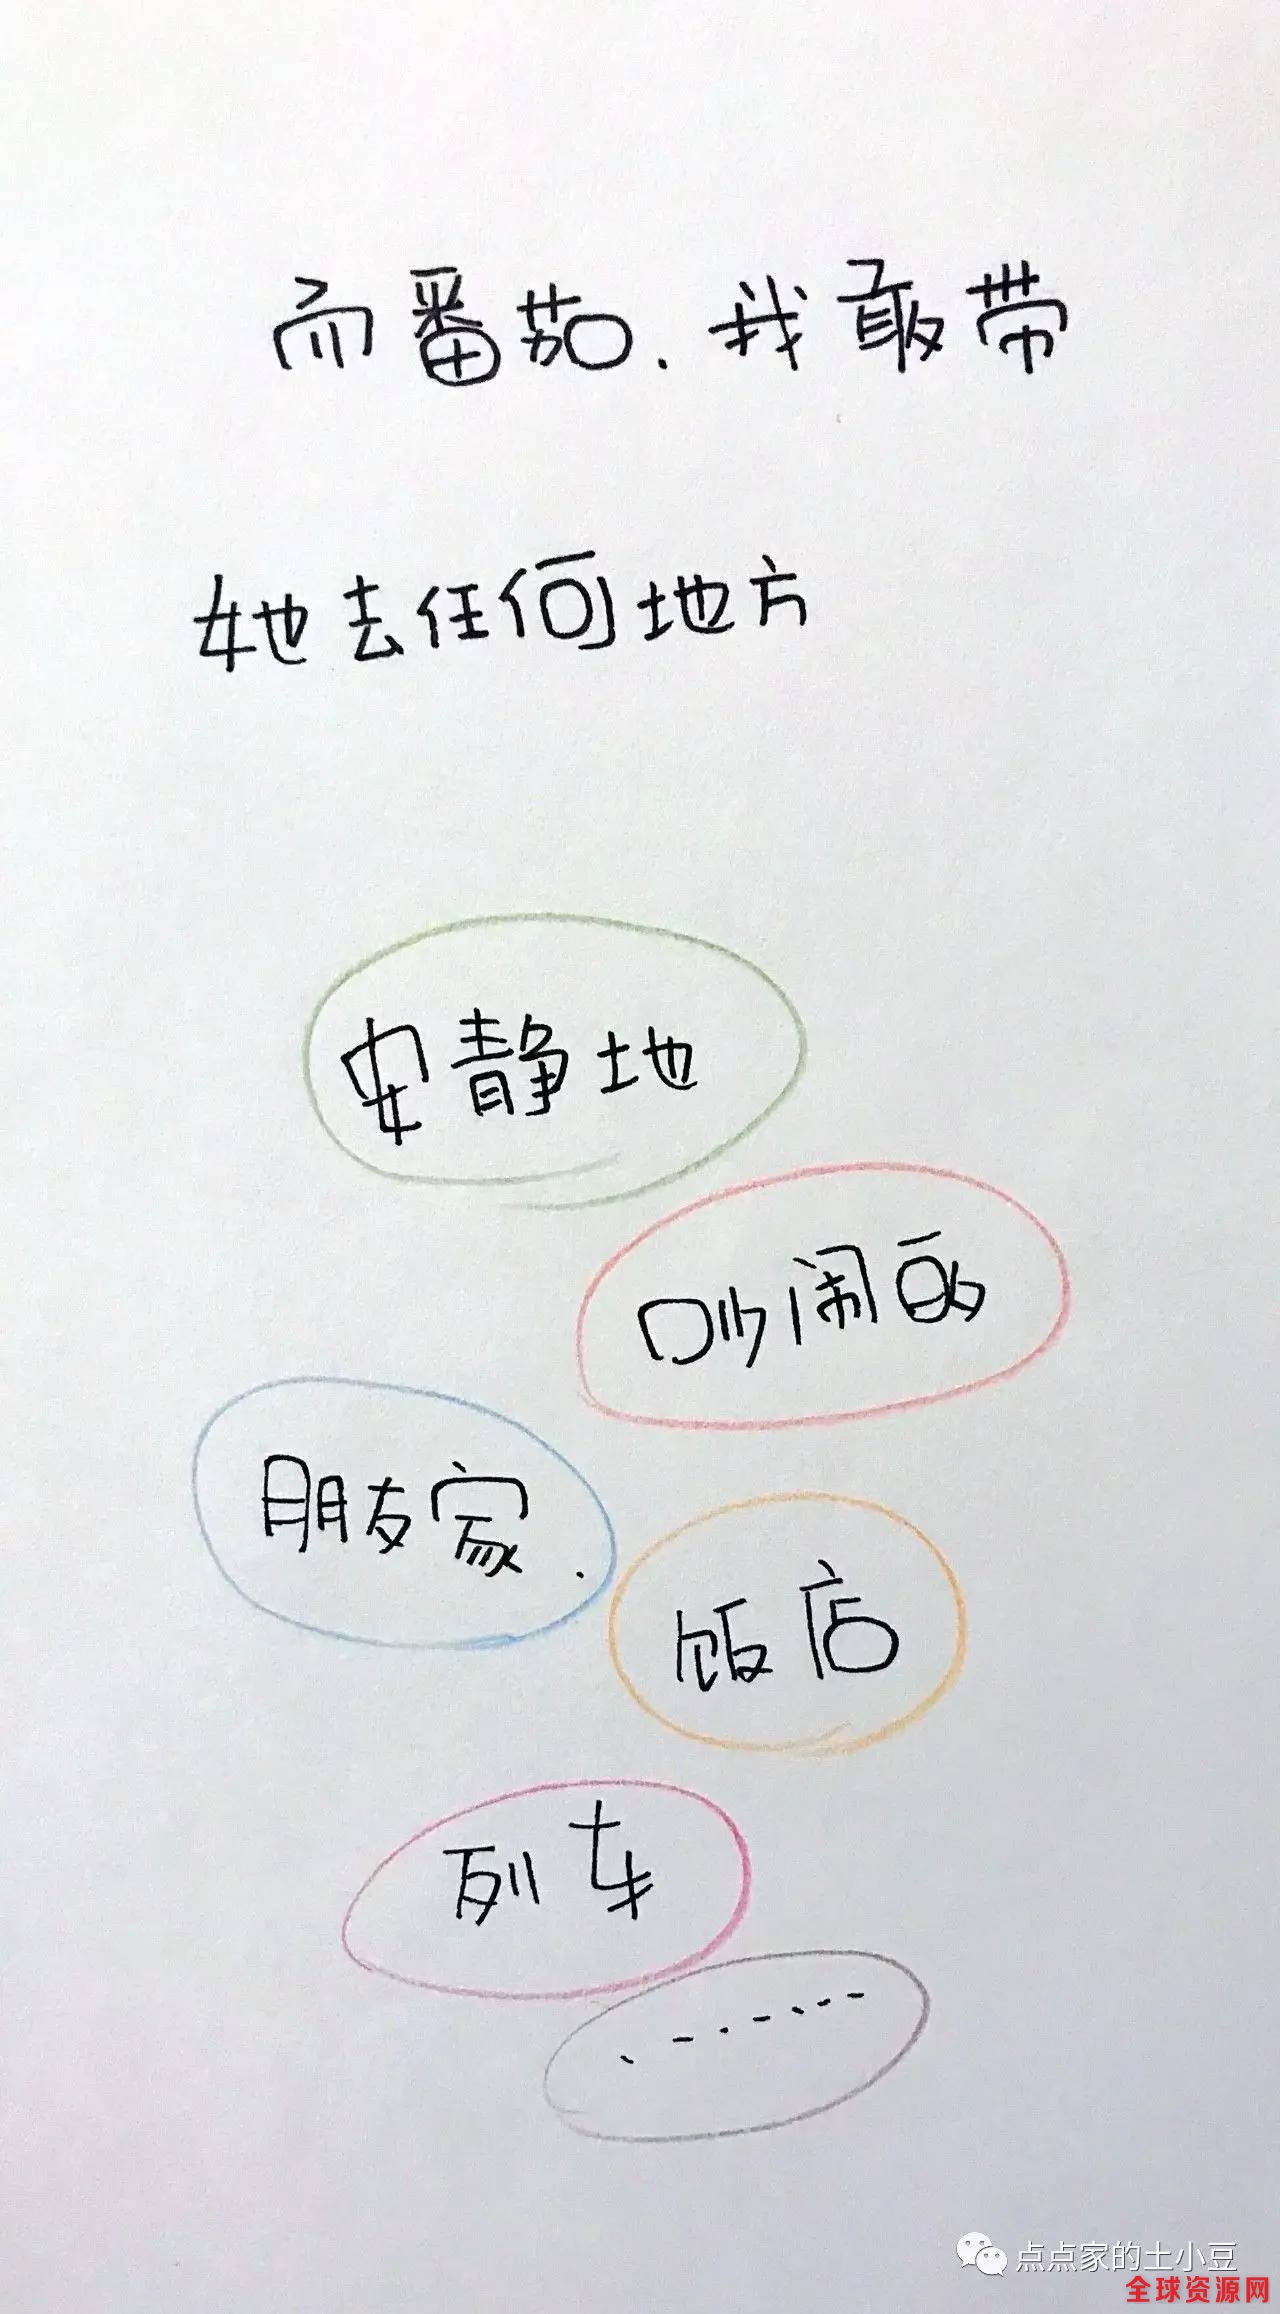 而番茄.我敢带
她去任何地方
安静地
吵闹
朋友家.
饭店
列车
......
点点家的土小豆
全球资源网